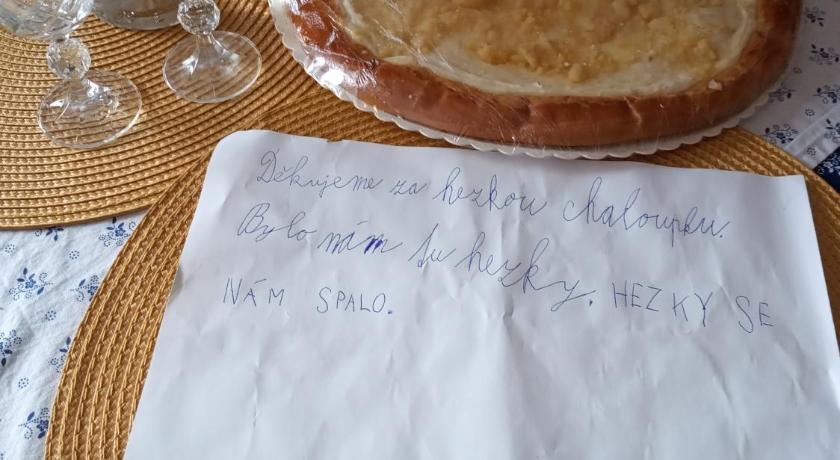 Děkujeme za hezkou chaloupku.
Bylo nám tu hezky. HEZKY SE
NÁM SPALO.